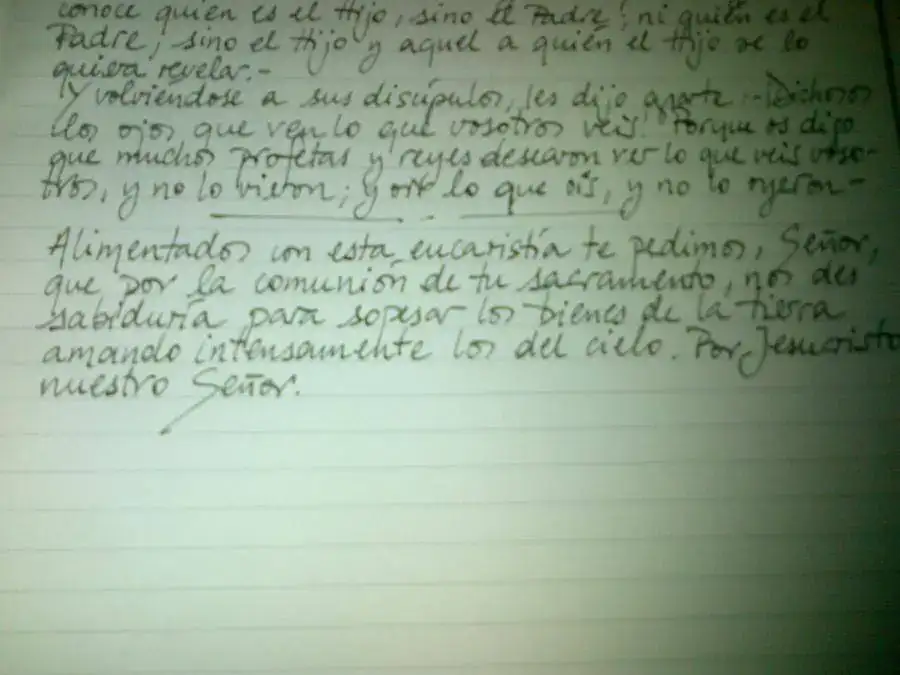 conoce quién es el Hijo, sino el Padre; ni quién es el
Padre, sino el Hijo y aquel a quién el Hijo se lo
quiera revelar.-
Y volviéndose a sus discípulos, les dijo aparte:-¡Dichosos
los ojos que ven lo que vosotros veis! Porque os digo
que muchos profetas y reyes desearon ver lo que veis voso-
tros, y no lo vieron; y oir lo que oís, y no lo oyeron-
Alimentados con esta eucaristía te pedimos, Señor,
que por la comunión de tu sacramento, nos des
sabiduría para sopesar los bienes de la tierra
amando intensamente los del cielo. Por Jesucristo
nuestro Señor.